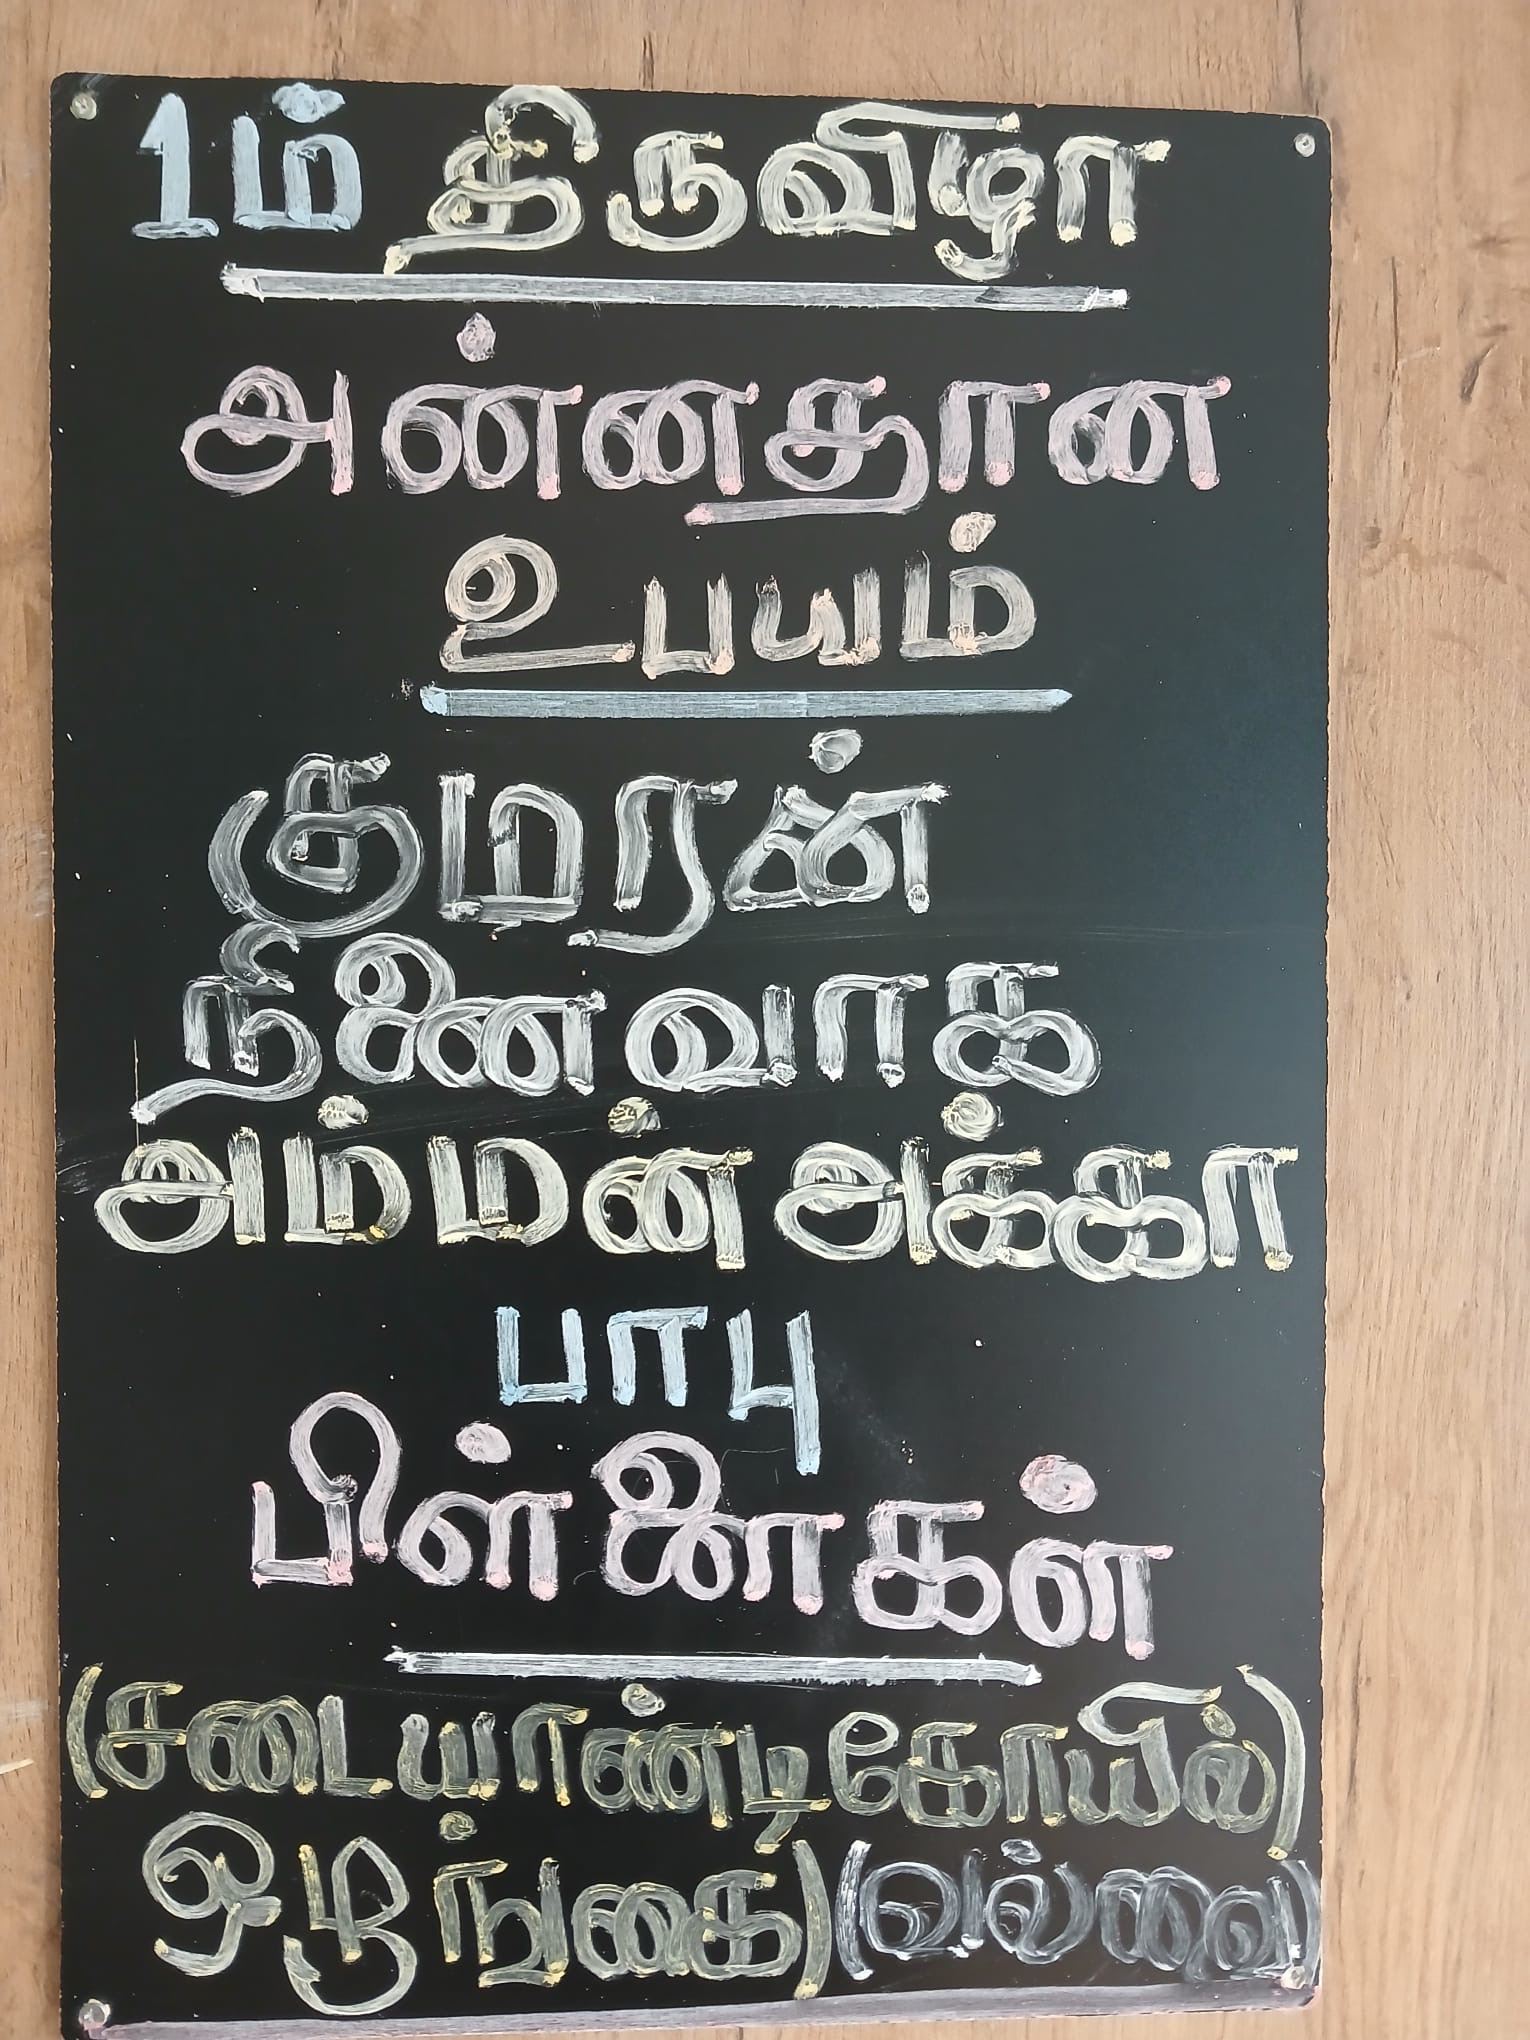 1ம் திருவிழா
அன்னதான
உபயம்
குமரன்
நினைவாக
அம்மன் அக்கா
பாபு
பிள்ளைகள்
(சடையாண்டி கோயில்)
ஒழுங்கை) (வல்வை)